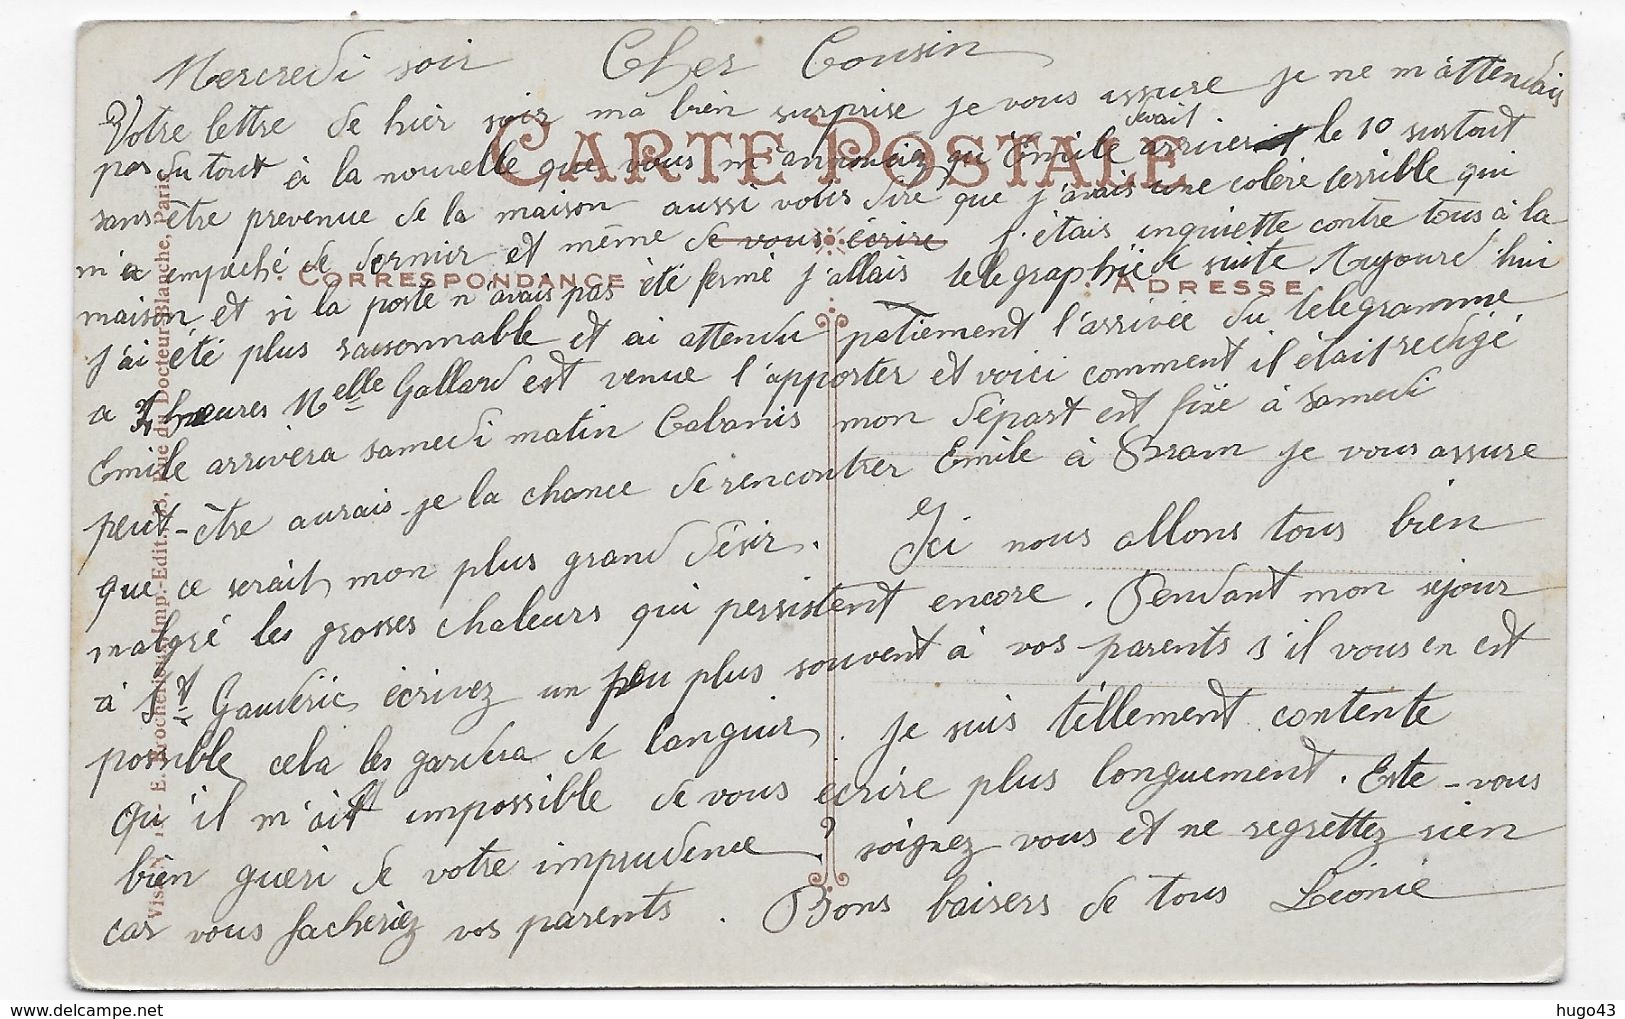 Mercredi soir Cher Cousin
Votre lettre de hier soir ma bien surprise je vous assure je ne m'attendais
pas du tout à la nouvelle que vous m'annonciez qu'Emile devait arriver le 10 surtout
sans être prevenue de la maison aussi vous dire que j'avais une colère terrible qui
m'a empeché de dormir et même de vous écrire j'étais inquiette contre tous à la
maison et si la poste n'avais pas été fermé j'allais telegraphié de suite Aujourd'hui
j'ai été plus raisonnable et ai attendu patiement l'arrivée du telegramme
a heures Melle Gallard est venue l'apporter et voici comment il était redigé
Emile arrivera samedi matin Cabanis mon départ est fixé à samedi
peut-être aurais-je la chance de rencontrer Emile à Bram je vous assure
que ce serait mon plus grand désir. Ici nous allons tous bien
malgré les grosses chaleurs qui persistent encore. Pendant mon sejour
à St Gaudéric écrivez un peu plus souvent à vos parents s'il vous en est
possible cela les gardera de languir. Je suis tellement contente
qu'il m'ait impossible de vous écrire plus longuement. Este-vous
bien guéri de votre imprudence? soignez vous et ne regrettez rien
car vous facheriez vos parents. Bons baisers de tous Léonie
CARTE POSTALE
CORRESPONDANCE
ADRESSE
Rue du Docteur Blanche, Paris
delcampe.net
hugo43